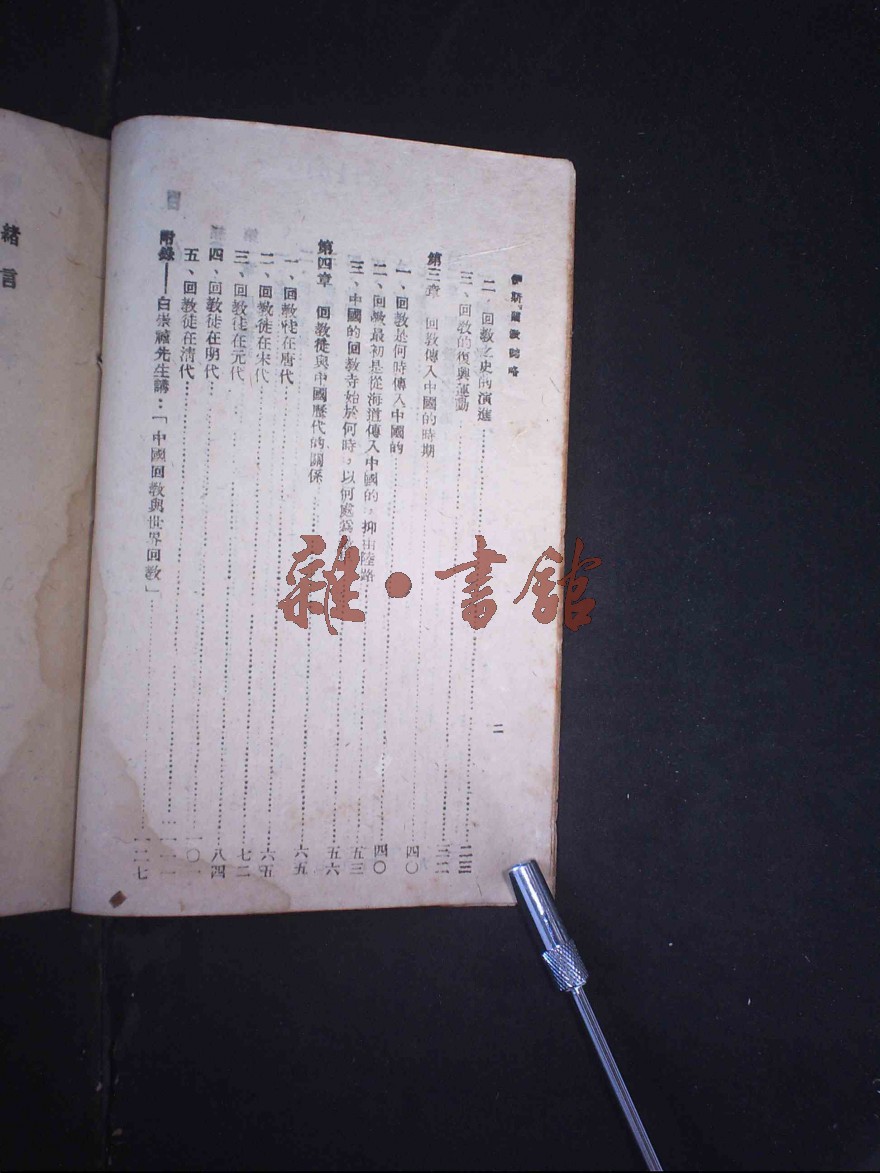 伊斯蘭教誌略
二
二、回教之史的演進……二三
三、回教的復興運動……三二
第三章 回教傳入中國的時期……四〇
一、回教是何時傳入中國的……四〇
二、回教最初是從海道傳入中國的,抑由陸路……五三
三、中國的回教寺始於何時,以何處爲……五六
第四章 回教徒與中國歷代的關係……六五
一、回教徒在唐代……六五
二、回教徒在宋代……七二
三、回教徒在元代……八四
四、回教徒在明代……一〇一
五、回教徒在清代……一一一
附錄——白崇禧先生講:「中國回教與世界回教」……一二七
緒言
雜·書館